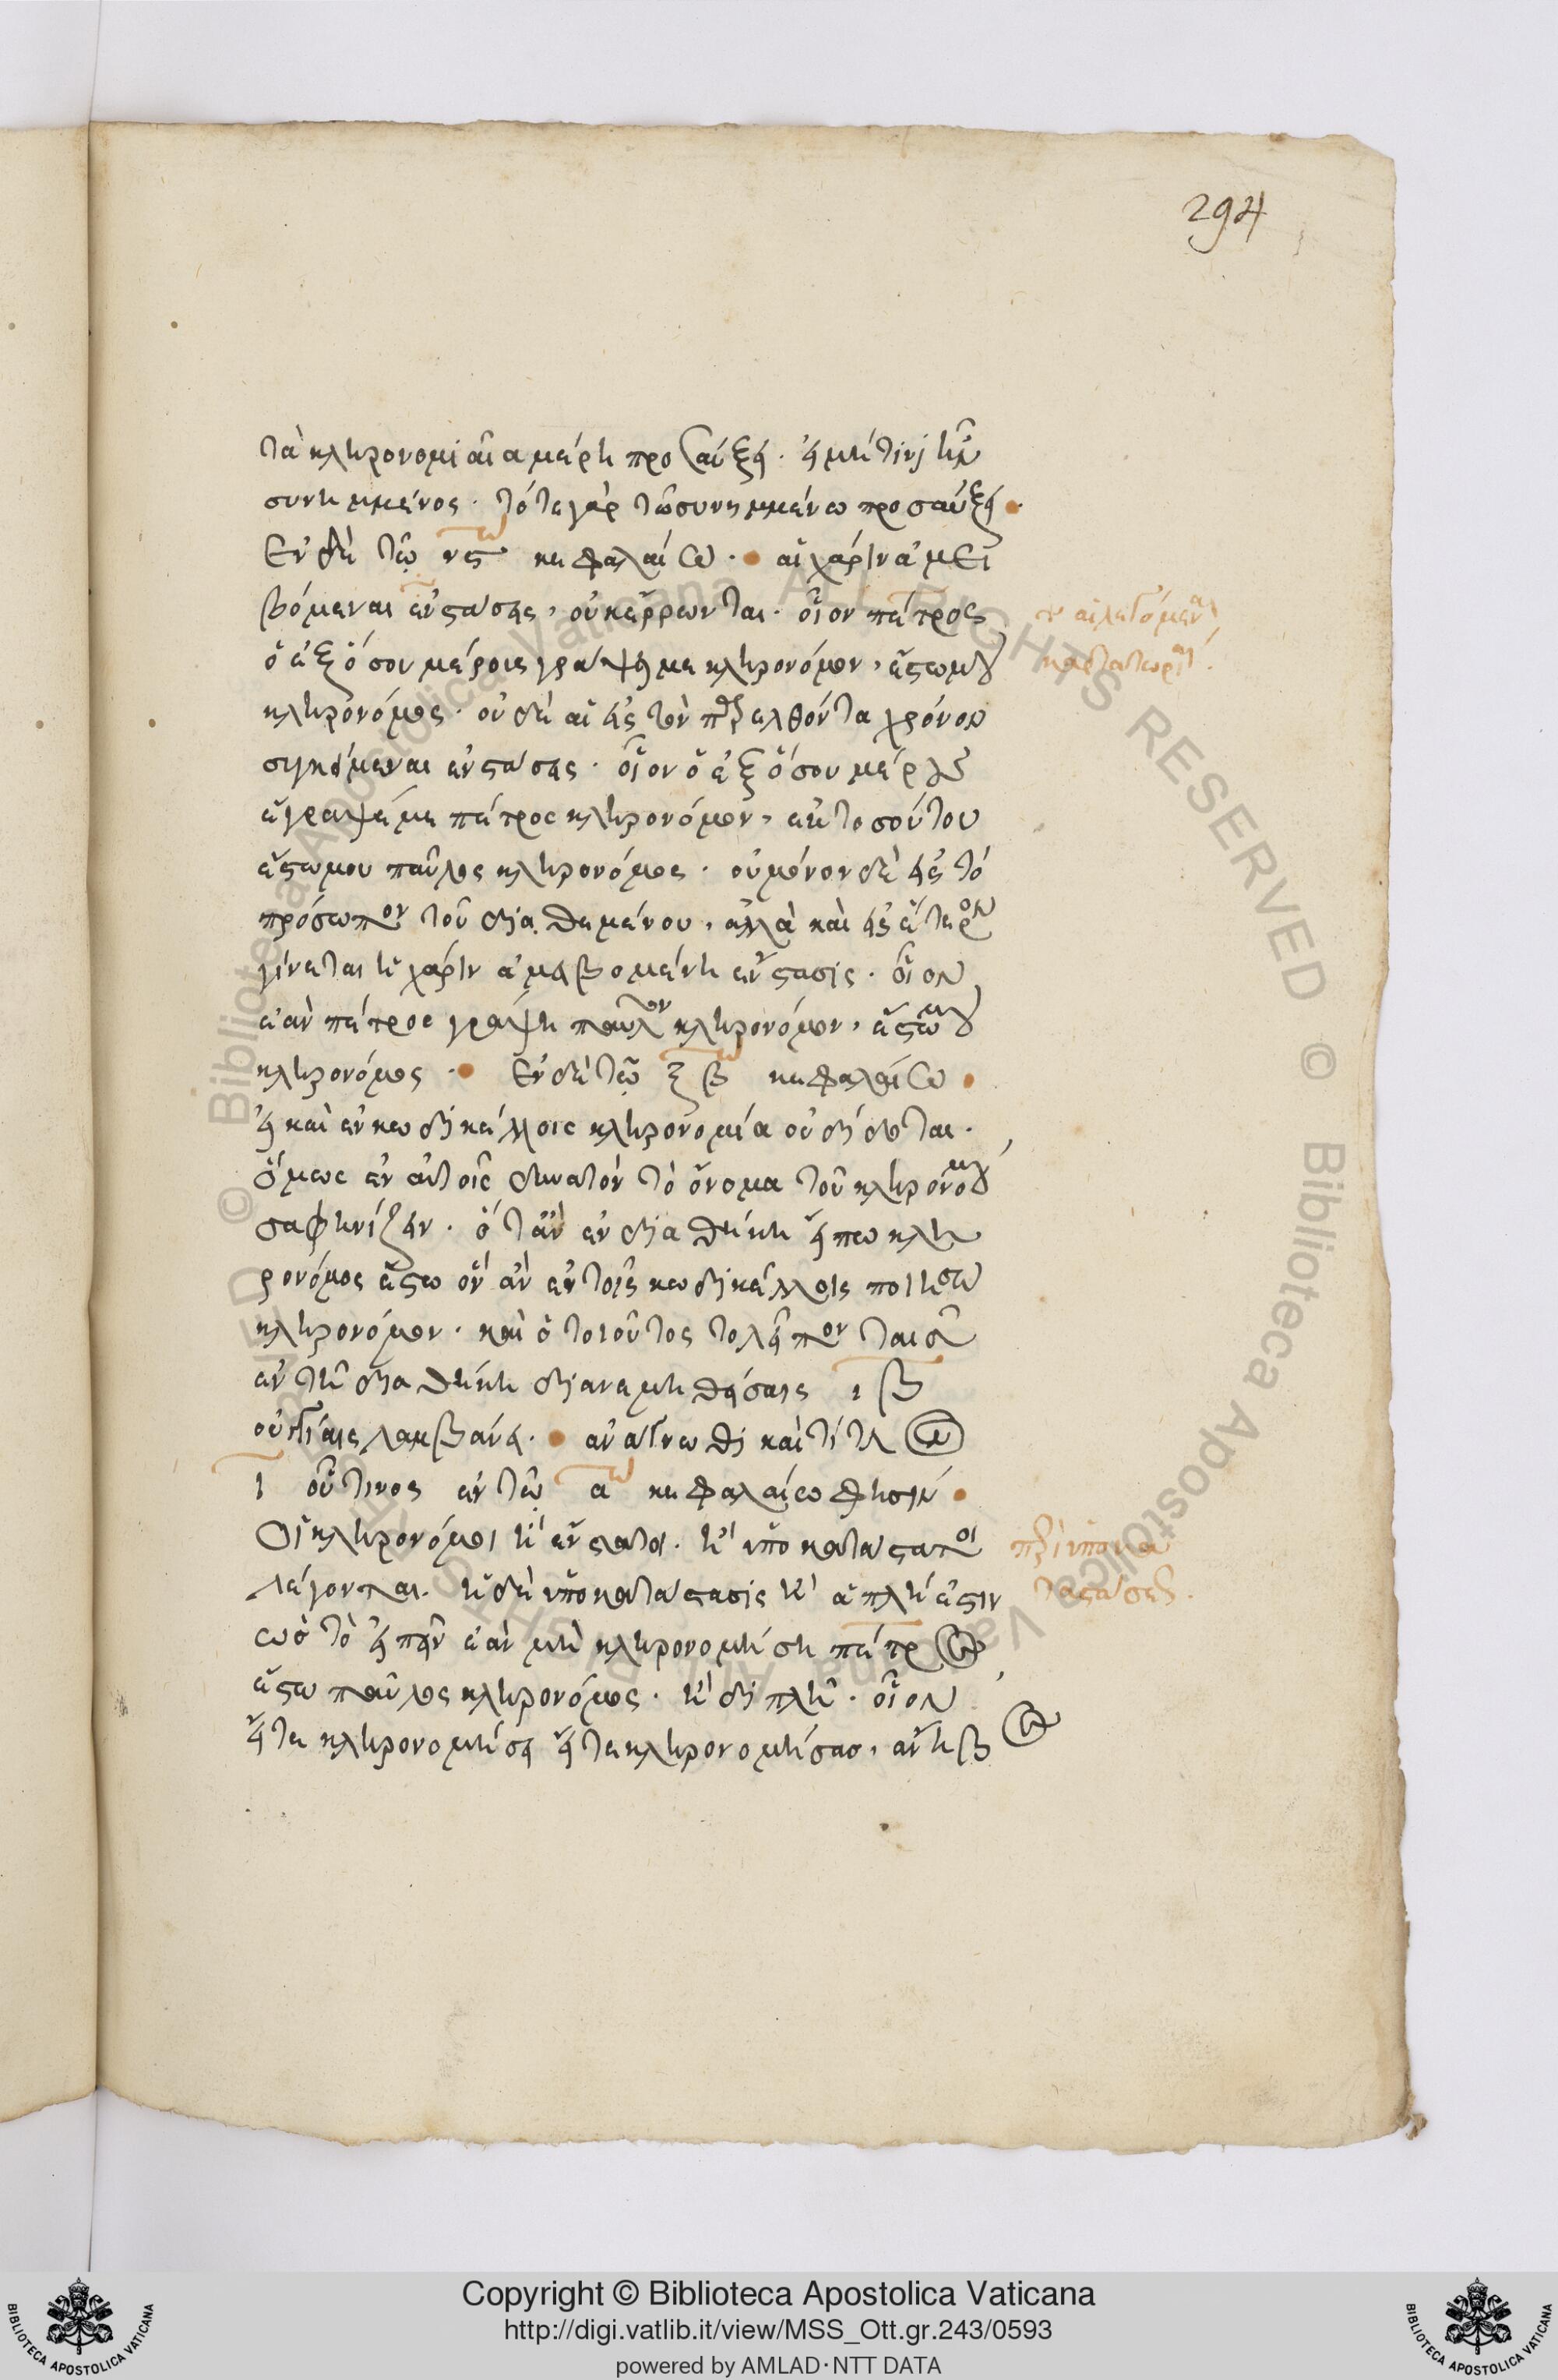 294
τὰ κληρονομιαῖα μέρη προσαύξει. εἰ μή τινι ἦν
συνημμένος. τότε γὰρ τῶ συνημμένω προσαύξει.
Ἐν δὲ τῶ νϛω κεφαλαίω. αἱ χάριν ἀμει
βόμεναι ἐνστάσεις, οὐκ ἔρρωνται. οἷον πέτρος
ὁ ἐξ ὅσου μέρους γράψει με κληρονόμον, ἔστω μου
κληρονόμος. οὐ δὲ αἱ εἰς τὸν παρελθόντα χρόνον
συγκείμεναι ἐνστάσεις. οἷον ὁ ἐξ ὅσου μέρους
ἔγραψέ με πέτρος κληρονόμον, ἐκ τοσούτου
ἔστω μου παῦλος κληρονόμος. οὐ μόνον δὲ εἰς τὸ
πρόσωπον τοῦ διαθεμένου, ἀλλὰ καὶ εἰς ἕτερον
γίνεται ἡ χάριν ἀμειβομένη ἔνστασις. οἷον
ἐὰν πέτρος γράψη παῦλον κληρονόμον, ἔστω μου
κληρονόμος. Ἐν δὲ τῶ ξβω κεφαλαίω.
εἰ καὶ ἐν κωδικέλλοις κληρονομία οὐ δίδοται.
ὅμως ἐν αὐτοῖς δυνατὸν τὸ ὄνομα τοῦ κληρονόμου
σαφηνίζειν. ὅταν ἐν διαθήκη εἴπω κλη
ρονόμος ἔστω ὃν ἂν ἐν τοῖς κωδικέλλοις ποιήσω
κληρονόμον. καὶ ὁ τοιοῦτος τὸ λεῖπον ταῖς
ἐν τῆ διαθήκη διανεμηθείσαις ιβ
οὐγκίαις λαμβάνει. ἀνάγνωθι καὶ τίτλον
ι οὗτινος ἐν τῶ αω κεφαλαίω φησίν
Οἱ κληρονόμοι ἢ ἔνστατοι. ἢ ὑποκατάστατοι
λέγονται. ἡ δὲ ὑποκατάστασις ἢ ἁπλῆ ἐστιν
ὡς τὸ εἰπεῖν ἐὰν μὴ κληρονομήση πέτρος
ἔστω παῦλος κληρονόμος. ἢ διπλῆ. οἷον
εἴτε κληρονομήσει εἴτε κληρονομήσας, ἄνηβος
περὶ ὑποκα
ταστάσεως.
Copyright © Biblioteca Apostolica Vaticana
http://digi.vatlib.it/view/MSS_Ott.gr.243/0593
powered by AMLAD·NTT DATA
BIBLIOTECA APOSTOLICA VATICANA
BIBLIOTECA APOSTOLICA VATICANA